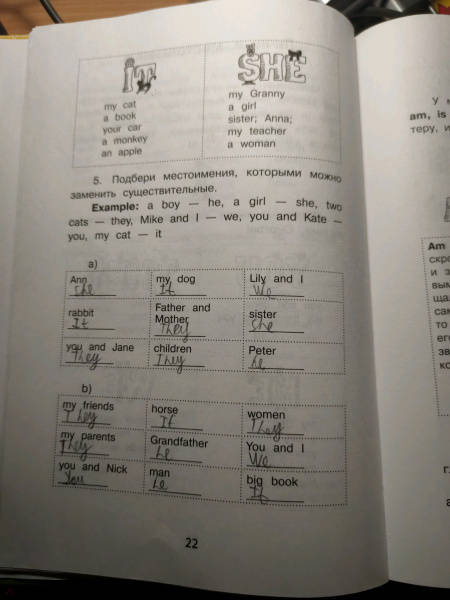 IT
my cat
a book
your car
a monkey
an apple
SHE
my Granny
a girl
sister; Anna;
my teacher
a woman
5. Подбери местоимения, которыми можно
заменить существительные.
Example: a boy — he, a girl — she, two
cats — they, Mike and I — we, you and Kate —
you, my cat — it
a)
Ann my dog Lily and I
she It We
rabbit Father and Mother sister
It They she
you and Jane children Peter
They They he
b)
my friends horse women
They It They
my parents Grandfather You and I
They he We
you and Nick man big book
You he It
22
У
am, is
теру, и
Am
скро
и з
вым
ща
сам
то
его
зв
ко
г.